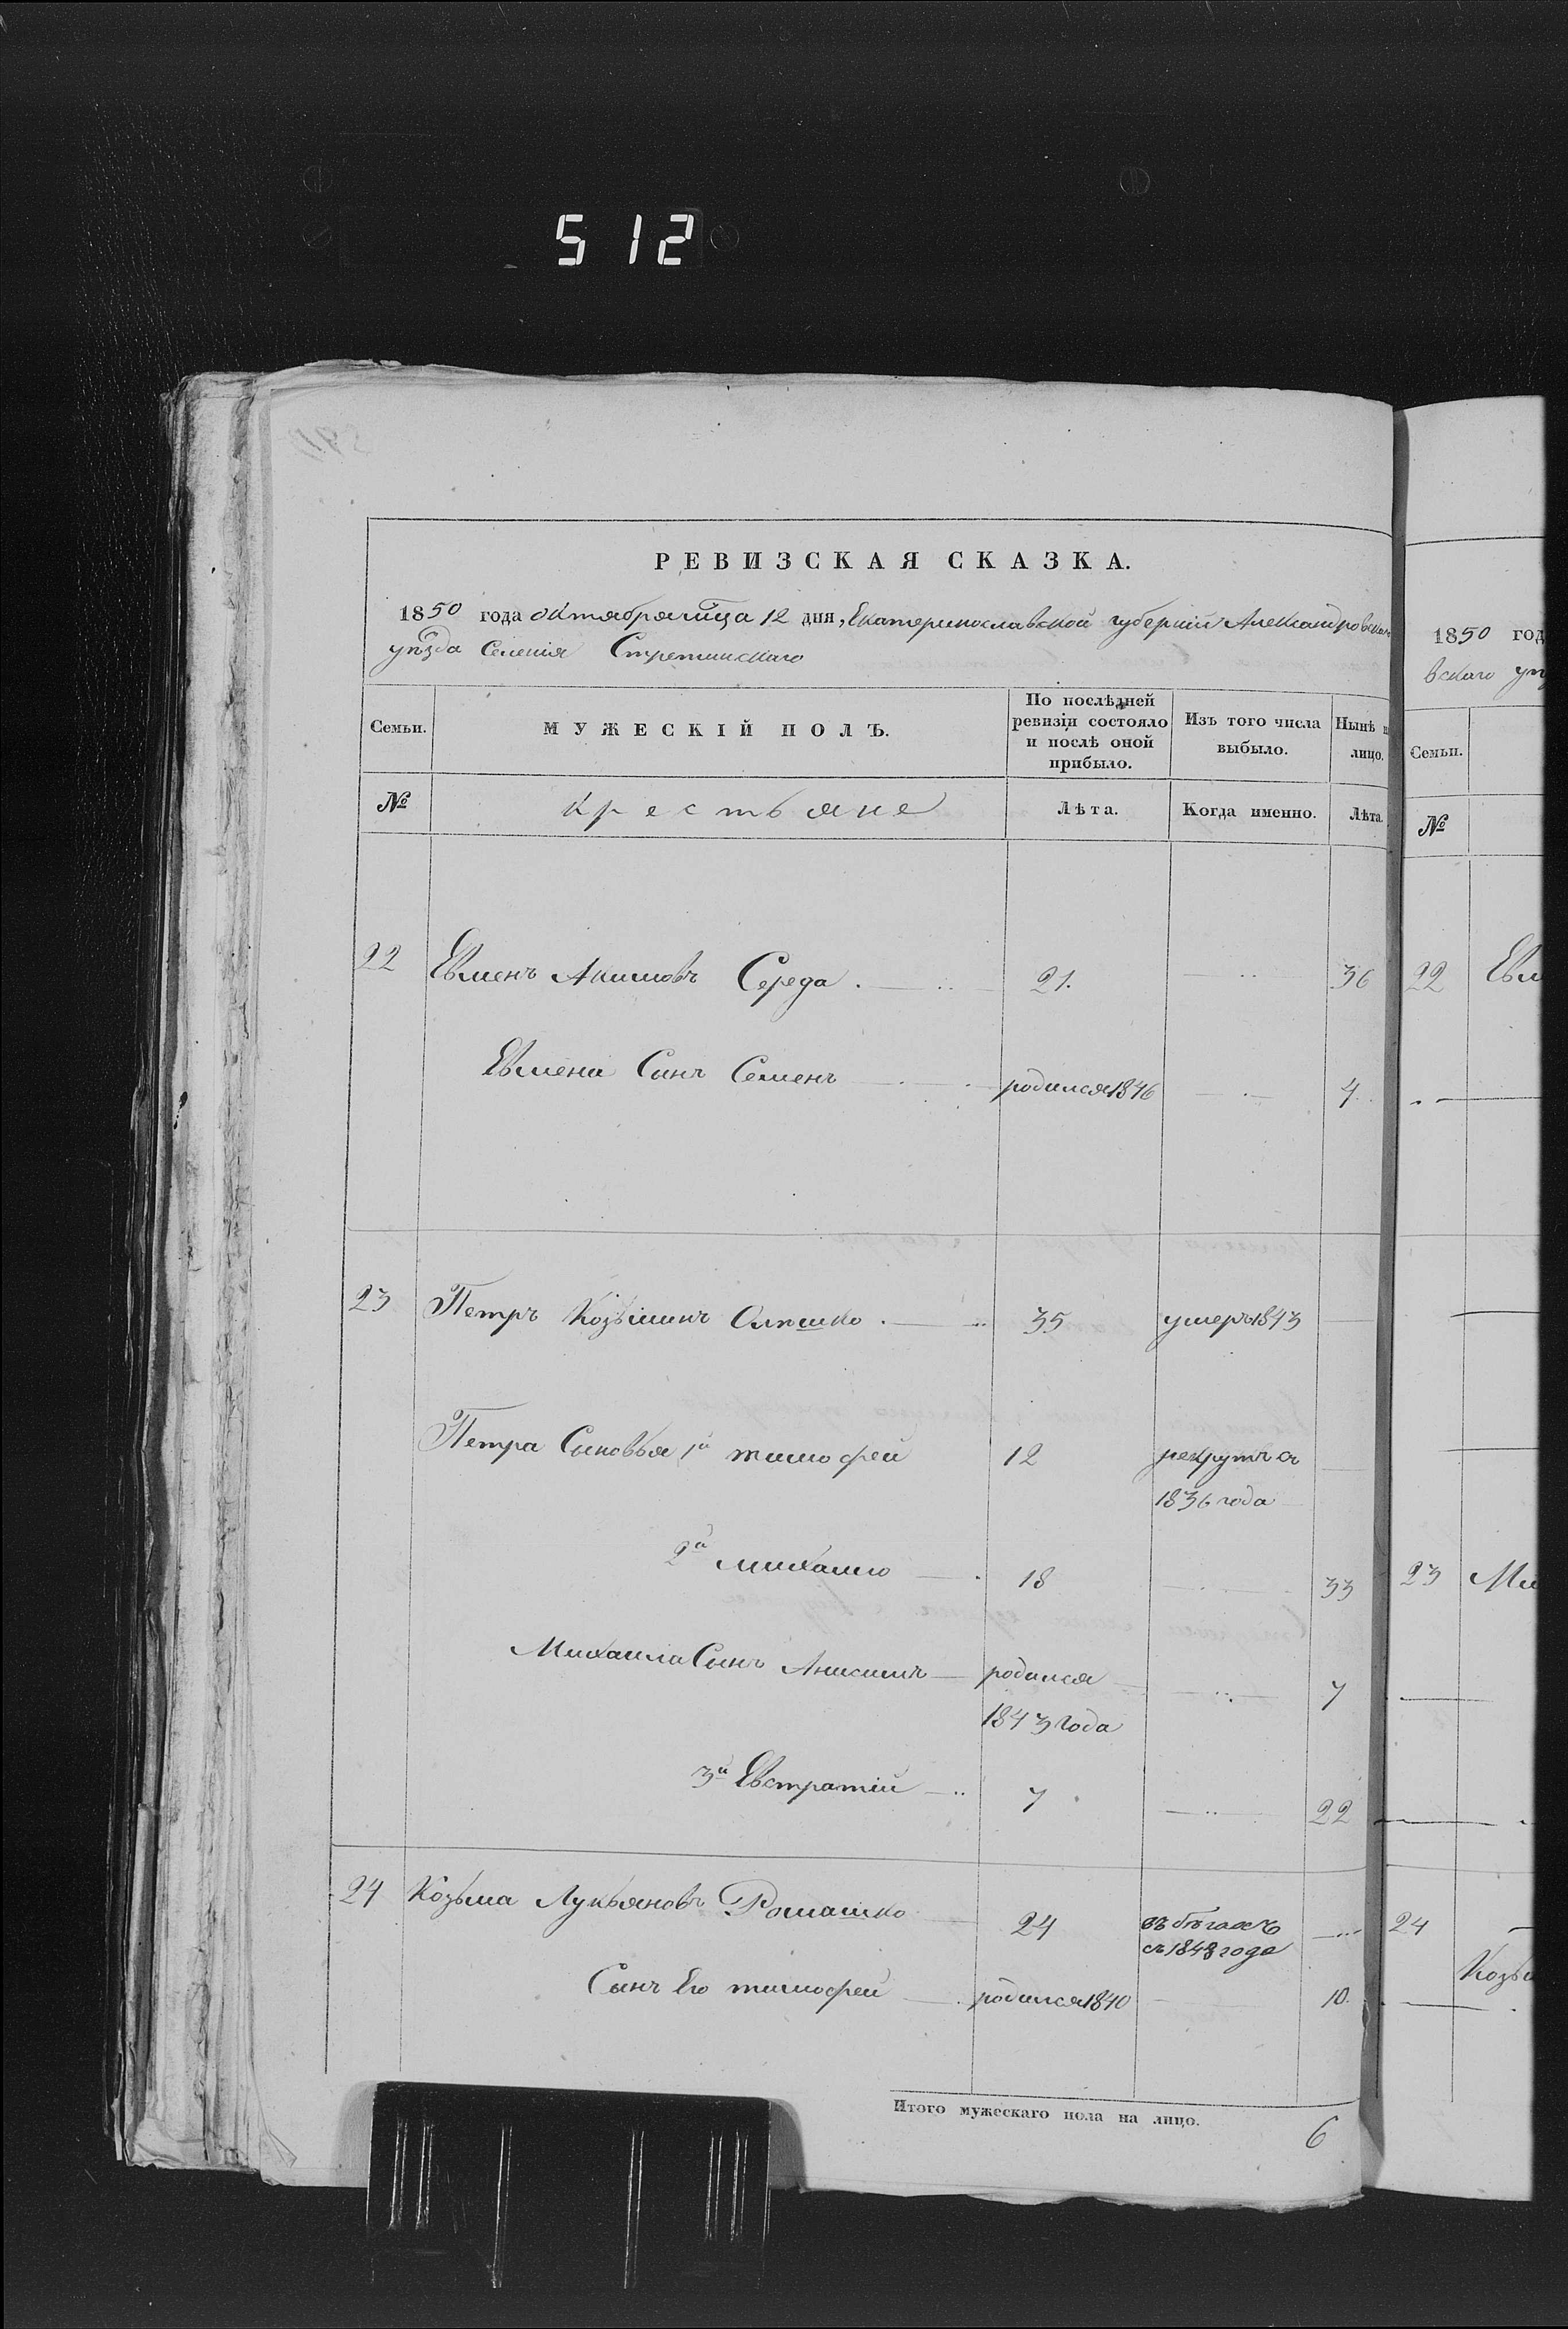 512
РЕВИЗСКАЯ СКАЗКА.
1850 года октября мѣсяца 12 дня, Екатеринославской губерніи Александровскаго
уѣзда Селенія Стретинскаго
Семьи. МУЖЕСКІЙ ПОЛЪ. По послѣдней ревизіи состояло и послѣ оной прибыло. Изъ того числа выбыло. Нынѣ на лицо.
№ крестьяне Лѣта. Когда именно. Лѣта.
22 Евменъ Акимовъ Середа 21. 36
Евмена Сынъ Семенъ родился 1846 4
23 Петръ Козьминъ 35 умеръ 1843
Петра Сыновья 1й тимофей 12 рекрутъ съ
1836 года
2й михаило 18 33
Михаила Сынъ Анисимъ родился 7
1843 года
3й Евстратій 7 22
24 Козьма Лукьяновъ Ромашко 24 въ бѣгахъ
съ 1848 года
Сынъ Его тимофей родился 1840 10.
Итого мужескаго пола на лицо. 6
1850 год
вскаго
Семьи.
№
22 Евм
23 Ми
24
Козь